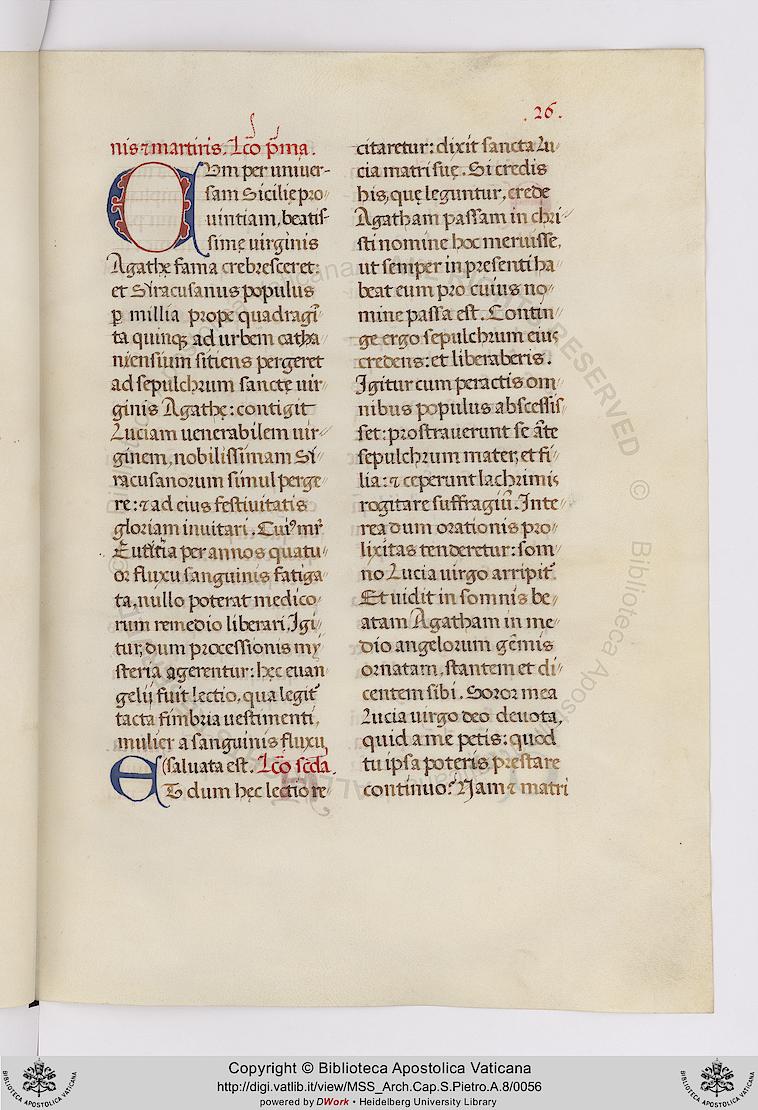 . 26 .
nis ⁊ martiris. Lc̄o pͥma.
CVm per uniuer-
sam Sicilię pro-
uintiam, beatis-
simę uirginis
Agathę fama crebresceret:
et Siracusanus populus
ꝑ millia prope quadragī-
ta quinqꝫ ad urbem catha-
niensium sitiens pergeret
ad sepulchrum sanctę uir-
ginis Agathę: contigit
Luciam uenerabilem uir-
ginem, nobilissimam Si-
racusanorum simul perge-
re: ⁊ ad eius festiuitatis
gloriam inuitari. Cuiꝰ mr̄
Euticia per annos quatu-
or fluxu sanguinis fatiga-
ta, nullo poterat medico-
rum remedio liberari. Igi-
tur, dum processionis my-
steria agerentur: hęc euan-
gelij fuit lectio, qua legit᷑
tacta fimbria uestimenti,
mulier a sanguinis fluxu,
saluata est. Lc̄o sc̄da.
ET dum hęc lectio re-
citaretur: dixit sancta Lu-
cia matri suę. Si credis
his, quę leguntur, crede
Agatham passam in chri-
sti nomine hoc meruisse,
ut semper in presenti ha-
beat eum pro cuius no-
mine passa est. Contin-
ge ergo sepulchrum eius
credens: et liberaberis.
Igitur cum peractis om-
nibus populus abscessis-
set: prostrauerunt se āte
sepulchrum mater, et fi-
lia: ⁊ ceperunt lachrimis
rogitare suffragiū. Inte-
rea dum orationis pro-
lixitas tenderetur: som-
no Lucia uirgo arripit᷑
Et uidit in somnis be-
atam Agatham in me-
dio angelorum gēmis
ornatam, stantem et di-
centem sibi. Soror mea
Lucia uirgo deo deuota,
quid a me petis: quod
tu ipsa poteris prestare
continuo? Nam ⁊ matri
Copyright © Biblioteca Apostolica Vaticana
http://digi.vatlib.it/view/MSS_Arch.Cap.S.Pietro.A.8/0056
powered by DWork • Heidelberg University Library